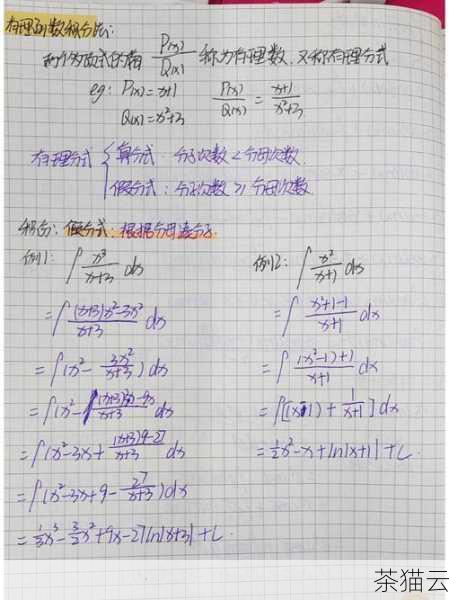 有理函数积分法:
两个多项式的商 P(x)/Q(x) 称为有理数,又称有理分式
eg: P(x)=x+1 P(x)/Q(x) = (x+1)/(x²+3)
Q(x)=x²+3
有理分式 { 真分式: 分子次数 < 分母次数
假分式: 分子次数 ≥ 分母次数
积分: 假分式: 根据分母凑分子.
例1: ∫ x³/(x+3) dx
= ∫ ((x+3)x²-3x²)/(x+3) dx
= ∫ (x² - 3x²/(x+3)) dx
= ∫ (x² - ((x+3)3x-9x)/(x+3) dx
= ∫ (x²-3x+ ((x+3)9-27)/(x+3) dx
= ∫ (x²-3x+9 - 27/(x+3)) dx
= 1/3x³ - 3/2x² + 9x - 27 ln|x+3| + C.
例2: ∫ x²/(x+1) dx
= ∫ (x²+1-1)/(x+1) dx
= ∫ ((x²-1)+1)/(x+1) dx
= ∫ [(x-1) + 1/(x+1)] dx
= 1/2x² - x + ln|x+1| + C.
茶猫云